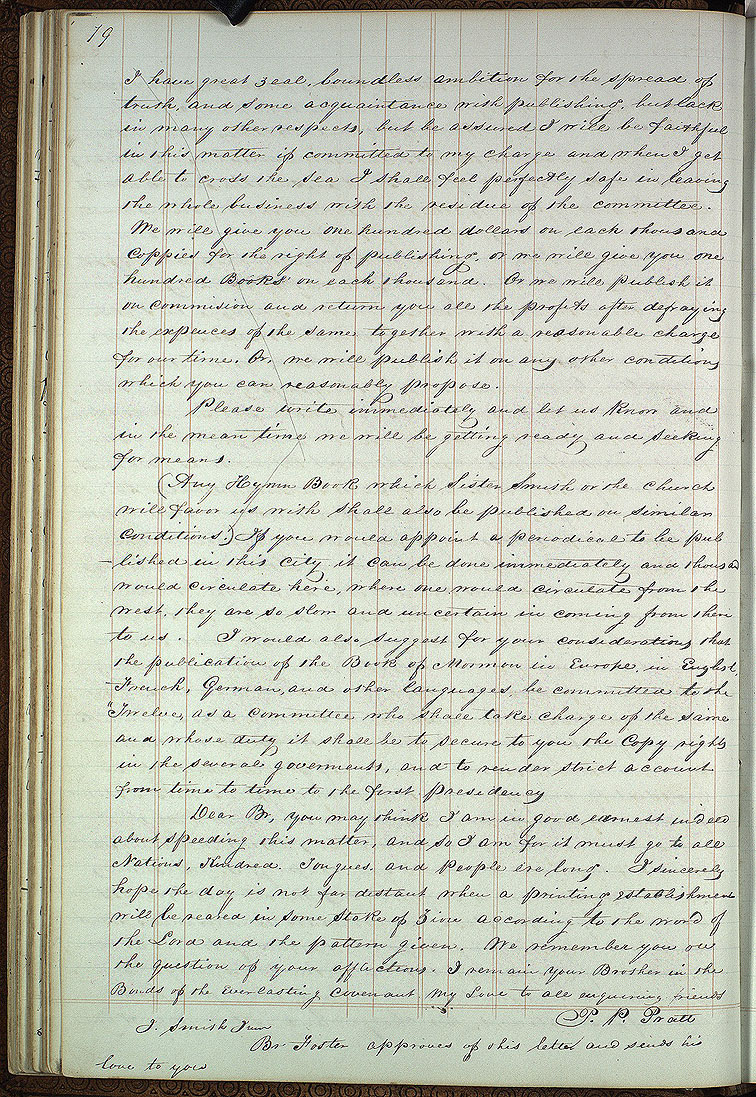 19
I have great zeal, boundless ambition for the spread of
truth, and some acquaintance with publishing, but lack
in many other respects, but be assured I will be faithful
in this matter if committed to my charge and when I get
able to cross the sea I shall feel perfectly safe in leaving
the whole business with the residue of the committee.
We will give you one hundred dollars on each thousand
Coppies for the right of publishing, or we will give you one
hundred Books on each thousand. Or we will publish it
on commision and return you all the profits after defraying
the expences of the same together with a reasonable charge
for our time. Or, we will publish it on any other conditions
which you can reasonably propose.
Please write immediately and let us know and
in the mean time we will be getting ready and seeking
for means.
(Any Hymn Book which Sister Smith or the church
will favor us with shall also be published on similar
conditions.) If you would appoint a periodical to be pub
lished in this city it can be done immediately and thousand
would circulate here, where one would circulate from the
west, they are so slow and uncertain in coming from there
to us. I would also suggest for your considerations that
the publication of the Book of Mormon in Europe, in English,
French, German, and other languages, be committed to the
Twelve, as a committee who shall take charge of the same
and whose duty it shall be to secure to you the Copy rights
in the several goverments, and to render strict account
from time to time to the first presidency
Dear Br, you may think I am in good earnest indeed
about speeding this matter, and so I am for it must go to all
Nations, Kindred. Tongues. and People ere long. I sincerely
hope the day is not far distant when a printing establishment
will be reared in some Stake of Zion according to the word of
the Lord and the pattern given. We remember you on
the question of your afflictions. I remain your Brother in the
Bonds of the Everlasting Covenant My Love to all enquiring friends
P. P. Pratt
J. Smith Jun
Br Foster approves of this letter and sends his
love to you